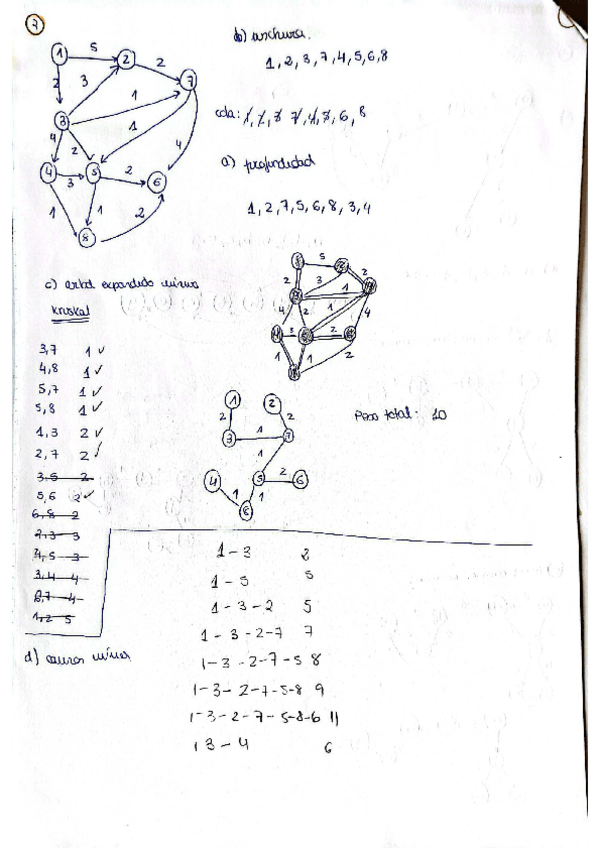 7
b) anchura.
1, 2, 3, 7, 4, 5, 6, 8
cola: 1, 2, 3 7, 4, 5, 6, 8
a) profundidad
1, 2, 7, 5, 6, 8, 3, 4
1 5 2 2 7
2 3 1
3 1 4
4 2
4 3 5 2 6
1 1 2
8
c) arbol expandido mínimo
Kruskal
3,7 1 ✓
4,8 1 ✓
5,7 1 ✓
5,8 1 ✓
1,3 2 ✓
2,7 2 ✓
3,5 2
5,6 2 ✓
6,8 2
2,3 3
4,5 3
3,4 4
6,7 4
1,2 5
5 2
2 3 1
4 2 1 4
3 2
1 1 2
1 2
2 1 2
3 7
1
4 5 2 6
1 1
8
Peso total: 10
d) camino mínimo
1 - 3 2
1 - 5 5
1 - 3 - 2 5
1 - 3 - 2 - 7 7
1 - 3 - 2 - 7 - 5 8
1 - 3 - 2 - 7 - 5 - 8 9
1 - 3 - 2 - 7 - 5 - 8 - 6 11
1 3 - 4 6